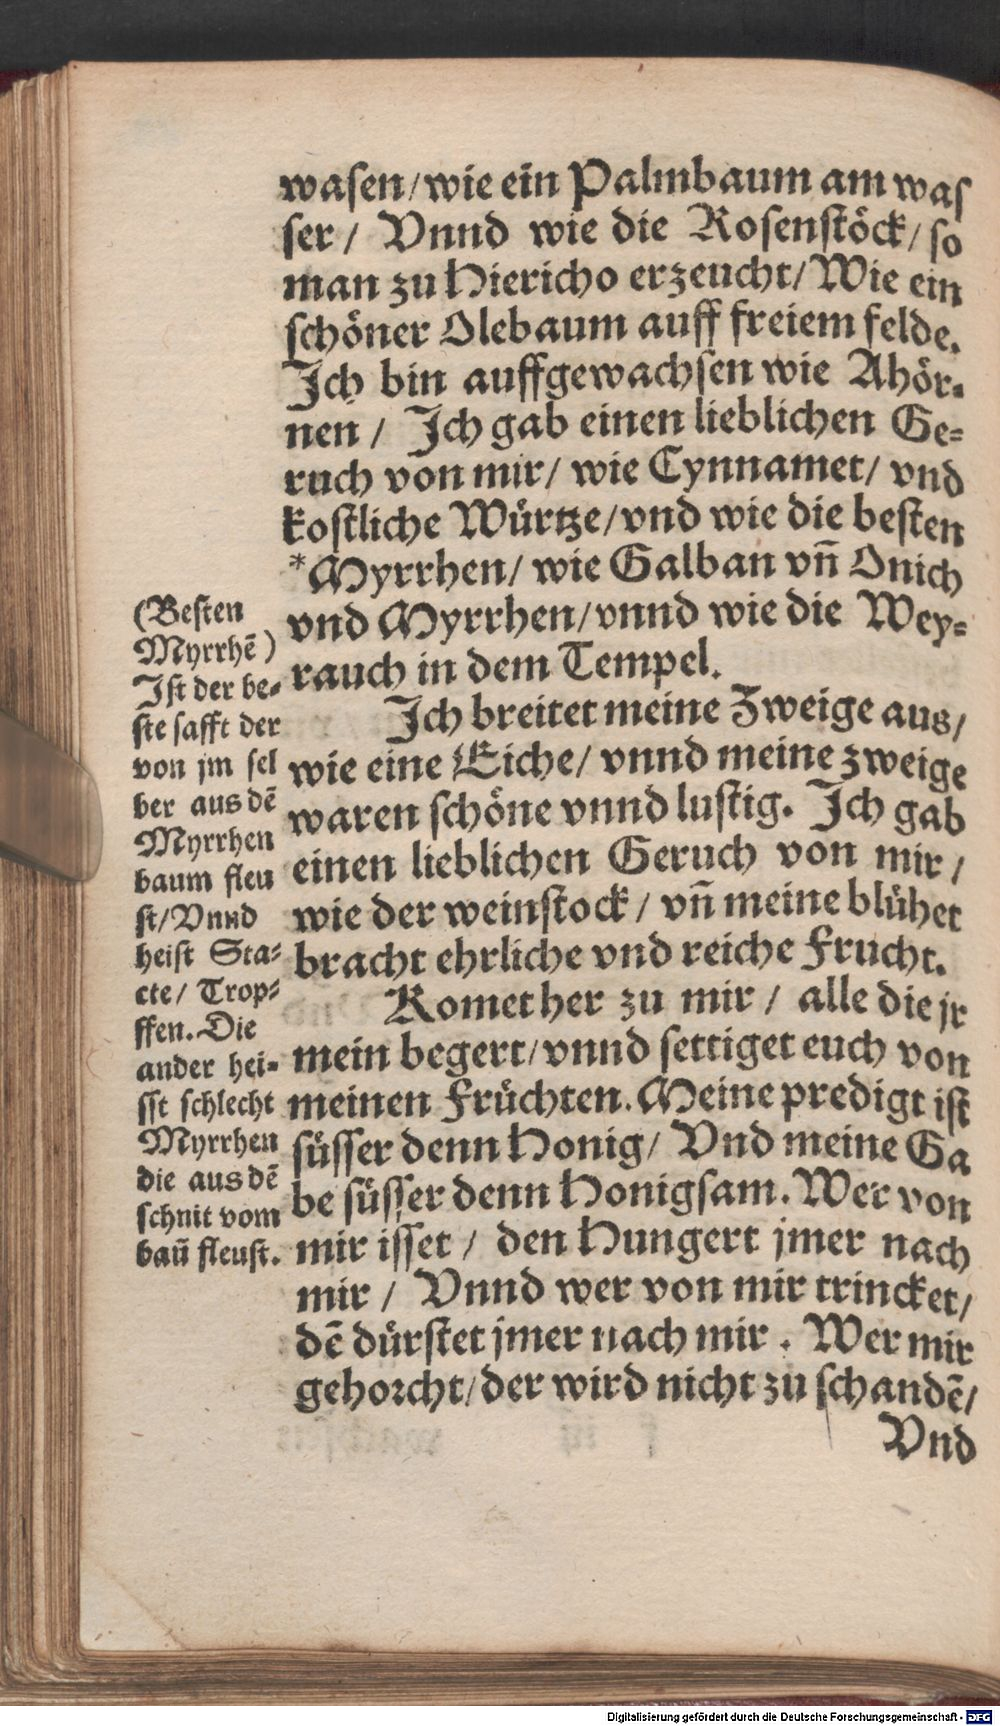 waſen/wie ein Palmbaum am waſ
ſer/ Vnnd wie die Roſenſtöck/ ſo
man zu Hiericho erzeucht/Wie ein
ſchöner Olebaum auff freiem felde.
Ich bin auffgewachſen wie Ahör-
nen/ Ich gab einen lieblichen Ge-
ruch von mir/ wie Cynnamet/ vnd
koſtliche Würtze/vnd wie die beſten
*Myrrhen/ wie Galban vñ Onich
vnd Myrrhen/vnnd wie die Wey-
rauch in dem Tempel.
Ich breitet meine Zweige aus/
wie eine Eiche/ vnnd meine zweige
waren ſchöne vnnd luſtig. Ich gab
einen lieblichen Geruch von mir/
wie der weinſtock/ vñ meine blühet
bracht ehrliche vnd reiche Frucht.
Komet her zu mir/ alle die jr
mein begert/vnnd ſettiget euch von
meinen Früchten. Meine predigt iſt
ſüſſer denn Honig/ Vnd meine Ga
be ſüſſer denn Honigſam. Wer von
mir iſſet/ den Hungert jmer nach
mir/ Vnnd wer von mir trincket/
dē dürſtet jmer nach mir. Wer mir
gehorcht/der wird nicht zu ſchandē/
Vnd
(Beſten
Myrrhē)
Iſt der be-
ſte ſafft der
von jm ſel
ber aus dē
Myrrhen
baum fleu
ſt/Vnnd
heiſt Sta-
cte/ Trop-
ffen. Die
ander hei-
ſſt ſchlecht
Myrrhen
die aus dē
ſchnit vom
baū fleuſt.
Digitalisierung gefördert durch die Deutsche Forschungsgemeinschaft - DFG